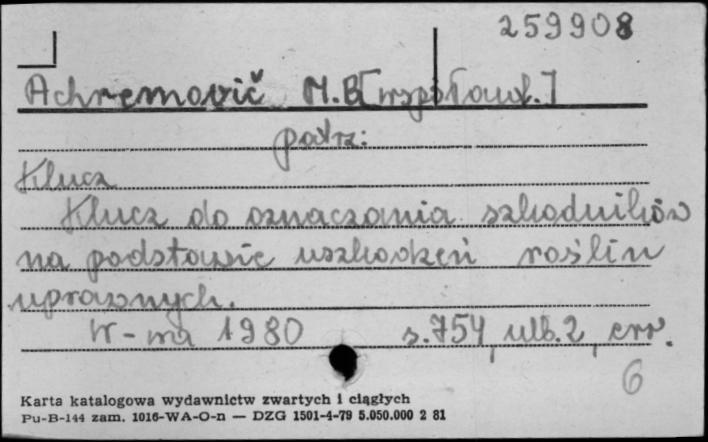 259908
Achremovič M.B [współaut.]
patrz:
Klucz
Klucz do oznaczania szkodników
na podstawie uszkodzeń roślin
uprawnych.
W-wa 1980 s. 754, ulb. 2, err.
6
Karta katalogowa wydawnictw zwartych i ciągłych
Pu-B-144 zam. 1016-WA-O-n — DZG 1501-4-79 5.050.000 2 81